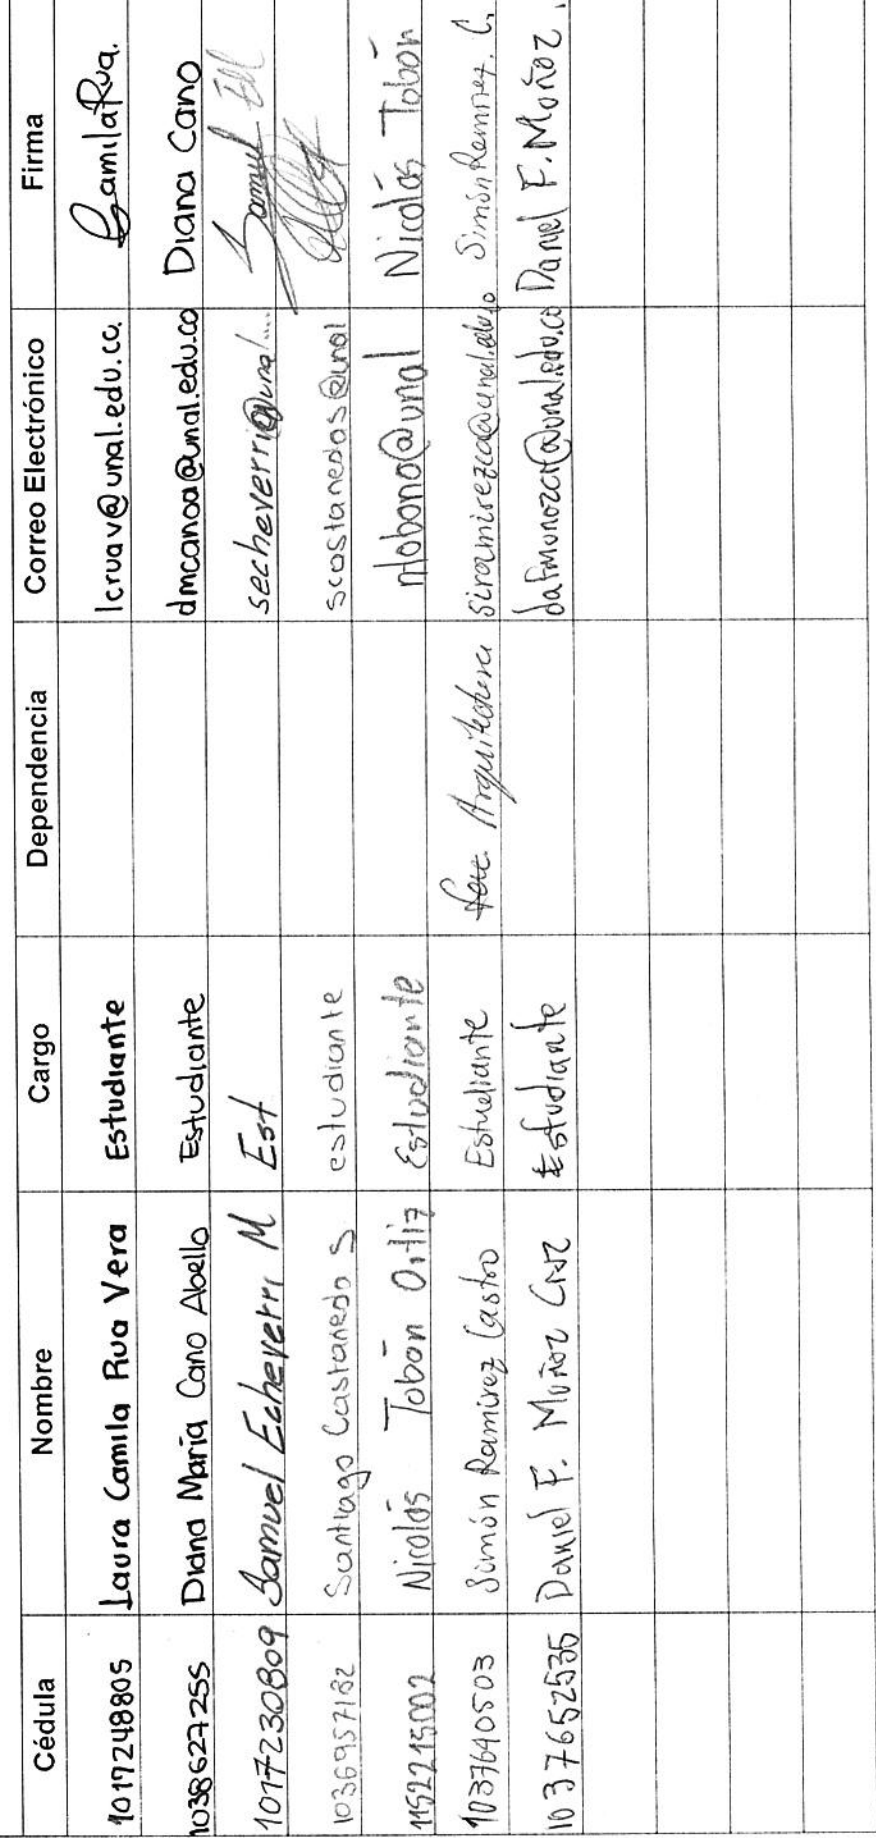 Cédula Nombre Cargo Dependencia Correo Electrónico Firma
1017248805 Laura Camila Rua Vera Estudiante lcruav@unal.edu.co. CamilaRua.
1038627255 Diana María Cano Abello Estudiante dmcanoa@unal.edu.co Diana Cano
1017230809 Samuel Echeverri M Est secheverri@unal... Samuel
1036957182 Santiago Castaneda S estudiante scastanedas@unal
1152215002 Nicolás Tobón Ortiz Estudiante ntobono@unal Nicolás Tobón
1037640503 Simón Ramirez Castro Estudiante Arquitectura siramirezca@unal.edu.co Simón Ramirez. C,
1037652535 Daniel F. Muñoz Cruz Estudiante dafmunozcr@unal.edu.co Daniel F. Muñoz.